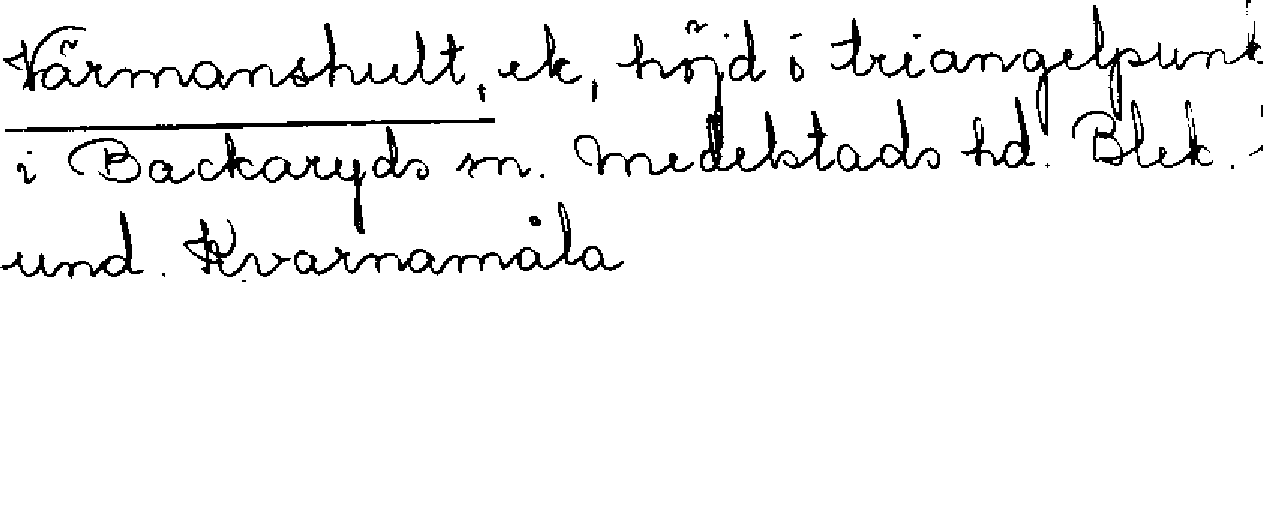 Värmanshult, ek, höjd i triangelpunk
i Backaryds sn. Medelstads hd. Blek.
und. Kvarnamåla